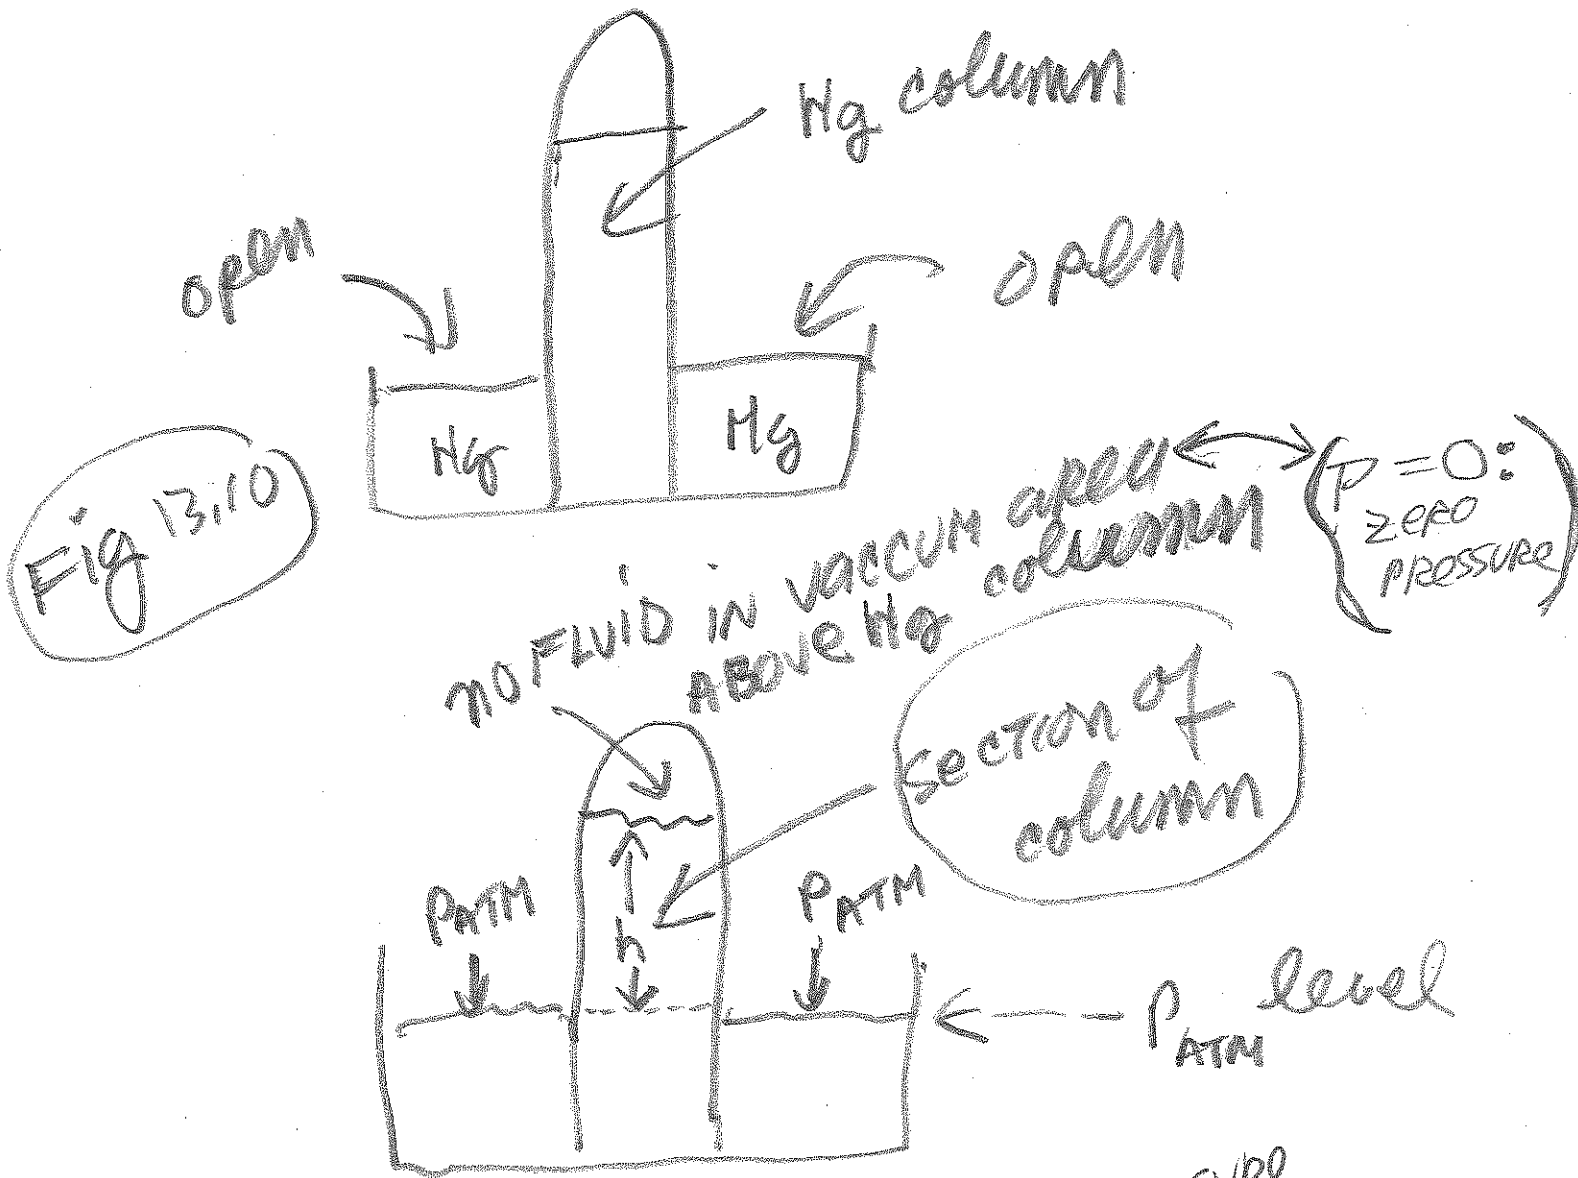 Hg column
open
open
Hg
Hg
Fig 13.10
NO FLUID IN VACCUM area
ABOVE Hg column
P = 0:
ZERO
PRESSURE
SECTION of
column
PATM
PATM
h
PATM level